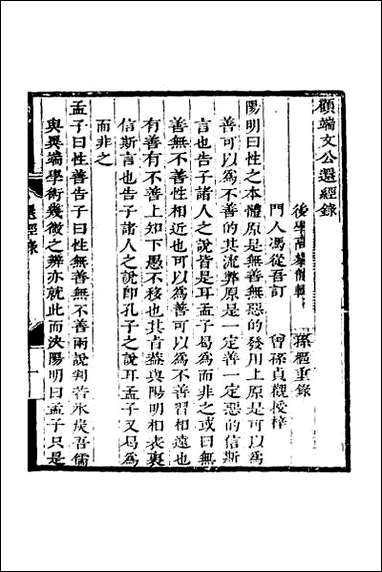 顧端文公還經錄
後學高攀龍輯 孫樞重錄
門人馮從吾訂 曾孫貞觀授梓
陽明曰性之本體原是無善無惡的發用上原是可以為
善可以為不善的其流弊原是一定善一定惡的信斯
言也告子諸人之說皆是耳孟子曷為而非之或曰無
善無不善性相近也可以為善可以為不善習相遠也
有善有不善上知下愚不移也其言蓋與陽明相表裏
信斯言也告子諸人之說即孔子之說耳孟子又曷為
而非之
孟子曰性善告子曰性無善無不善兩說判若氷炭吾儒
與異端學術幾微之辨亦就此而決陽明曰孟子只是
還經錄
一